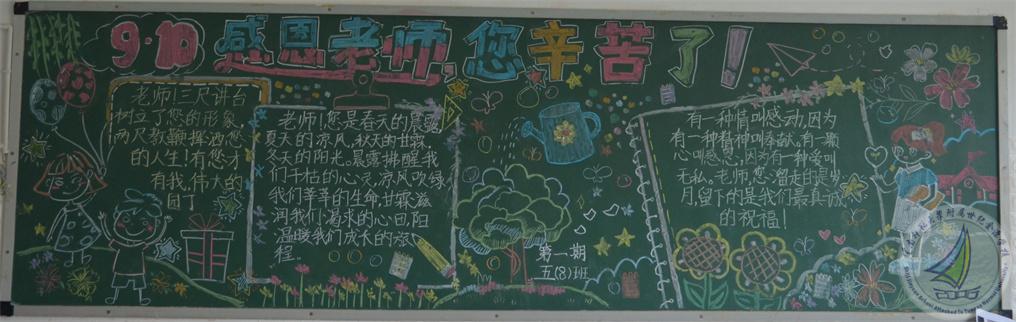 9·10 感恩老师,您辛苦了!
老师!三尺讲台
树立了您的形象,
两尺教鞭挥洒您
的人生!有您才
有我,伟大的
园丁
老师!您是春天的晨露,
夏天的凉风,秋天的甘霖,
冬天的阳光。晨露拂醒我
们干枯的心灵,凉风吹绿
我们莘莘的生命,甘霖滋
润我们渴求的心田,阳
温暖我们成长的旅
程。
第一期
五(8)班
有一种情叫感动,因为
有一种精神叫奉献。有一颗
心叫感恩,因为有一种爱叫
无私。老师,您溜走的是岁
月,留下的是我们最真诚
的祝福!